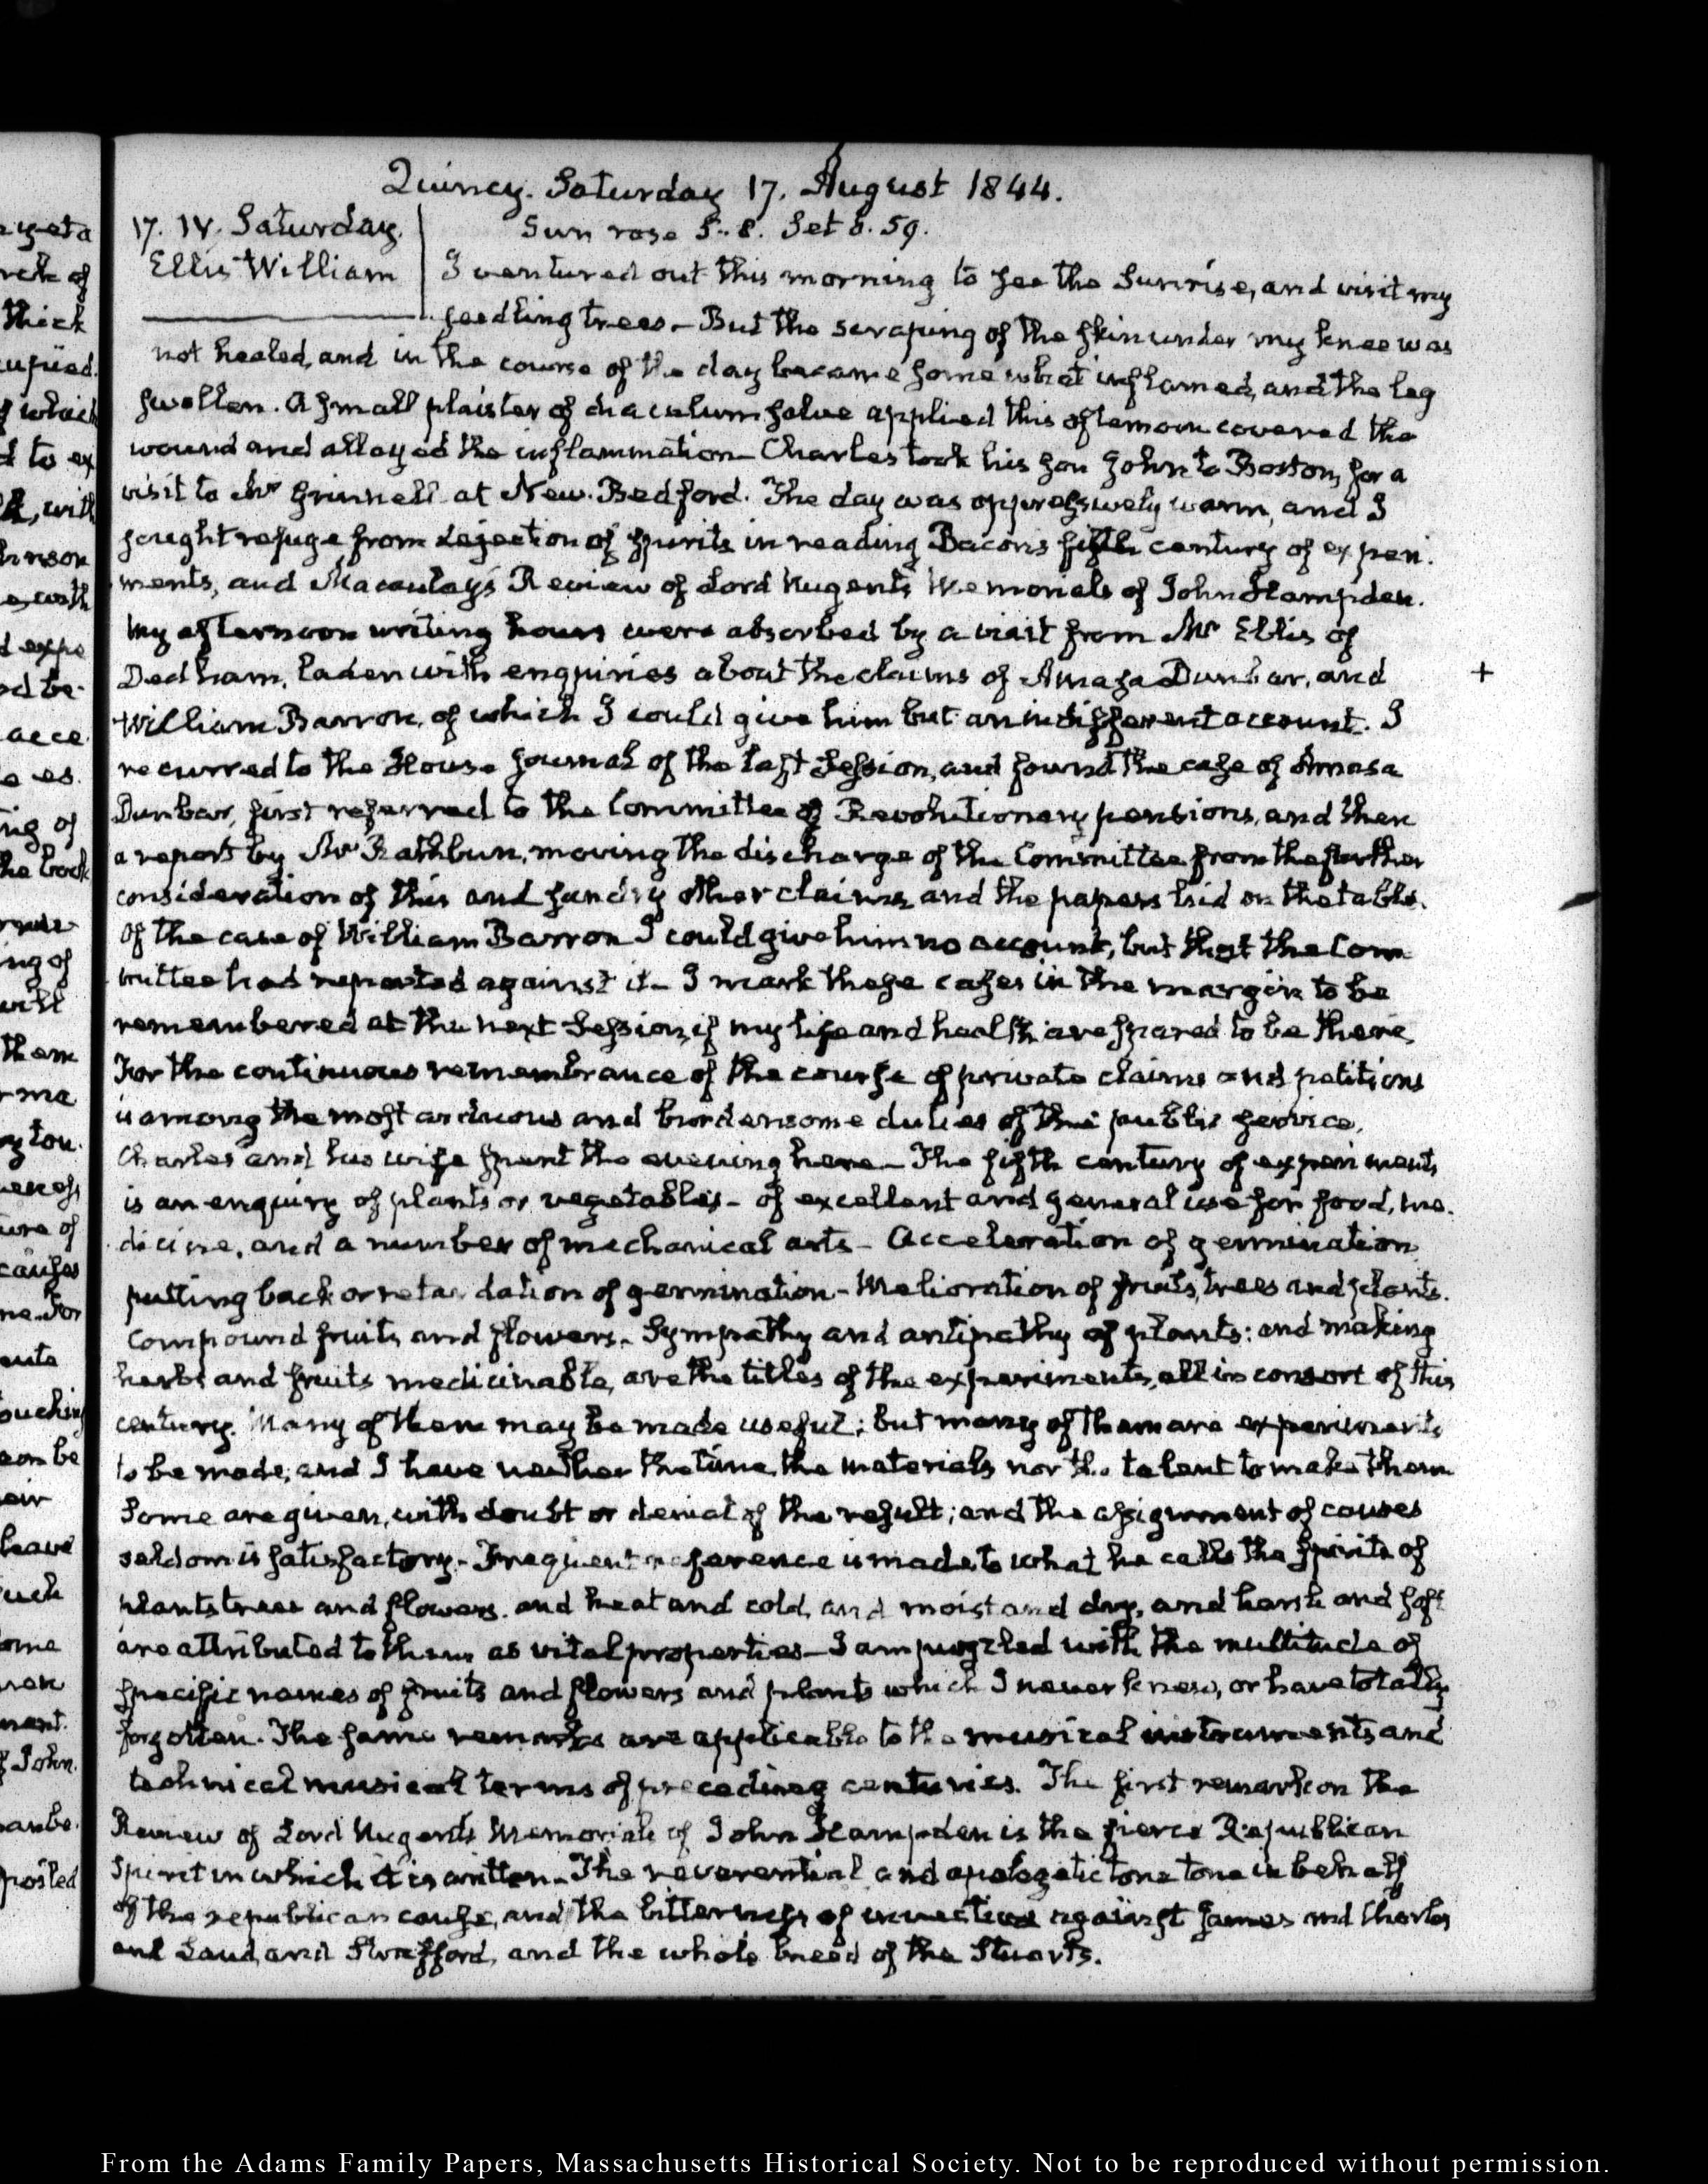 Quincy. Saturday 17. August 1844.
17. IV. Saturday.
Ellis William
Sun rose 5. 8. Set 6. 59.
I ventured out this morning to see the Sunrise, and visit my
seedling trees - But the scraping of the skin under my knee was
not healed, and in the course of the day became somewhat inflamed, and the leg
swollen. A small plaister of diaculum salve applied this afternoon covered the
wound and allayed the inflammation - Charles took his son John to Boston, for a
visit to Mr Grinnell at New-Bedford. The day was oppressively warm, and I
sought refuge from dejection of spirits in reading Bacons fifth century of experi-
ments, and Macaulay's Review of Lord Nugents Memorials of John Hampden.
My afternoon writing hours were absorbed by a visit from Mr Ellis of
Dedham, laden with enquiries about the claims of Amasa Dunbar, and
+
William Barron, of which I could give him but an indifferent account. I
recurred to the House journal of the last Session, and found the case of Amasa
Dunbar, first referred to the Committee of Revolutionary pensions, and then
a report by Mr Rathbun, moving the discharge of the Committee from the further
consideration of this and sundry other claims, and the papers laid on the table.
Of the case of William Barron I could give him no account, but that the Com-
mittee had reported against it - I mark these cases in the margin to be
remembered at the next Session, if my life and health are spared to be there,
For the continuous remembrance of the course of private claims and petitions
is among the most arduous and burdensome duties of the public service.
Charles and his wife spent the evening here - The fifth century of experiments
is an enquiry of plants or vegetables - of excellent and general use for food, me-
dicine, and a number of mechanical arts - Acceleration of germination
putting back or retardation of germination - Melioration of fruits, trees and plants.
Compound fruits and flowers - Sympathy and antipathy of plants: and making
herbs and fruits medicinable, are the titles of the experiments, all in consort of this
century. Many of them may be made useful; but many of them are experiments
to be made; and I have neither the time, the materials nor the talent to make them
Some are given, with doubt or denial of the result; and the assignment of causes
seldom is satisfactory - Frequent reference is made to what he calls the spirits of
plants trees and flowers. and heat and cold, and moist and dry, and harsh and soft
are attributed to them as vital properties - I am puzzled with the multitude of
specific names of fruits and flowers and plants which I never knew, or have totally
forgotten. The same remarks are applicable to the musical instruments and
technical musical terms of preceding centuries. The first remark on the
Review of Lord Nugents Memorials of John Hampden is the fierce Republican
Spirit in which it is written - The reverential and apologetic tone tone in behalf
of the republican cause, and the bitterness of invective against James and Charles
and Laud, and Strafford, and the whole breed of the Stuarts.
From the Adams Family Papers, Massachusetts Historical Society. Not to be reproduced without permission.